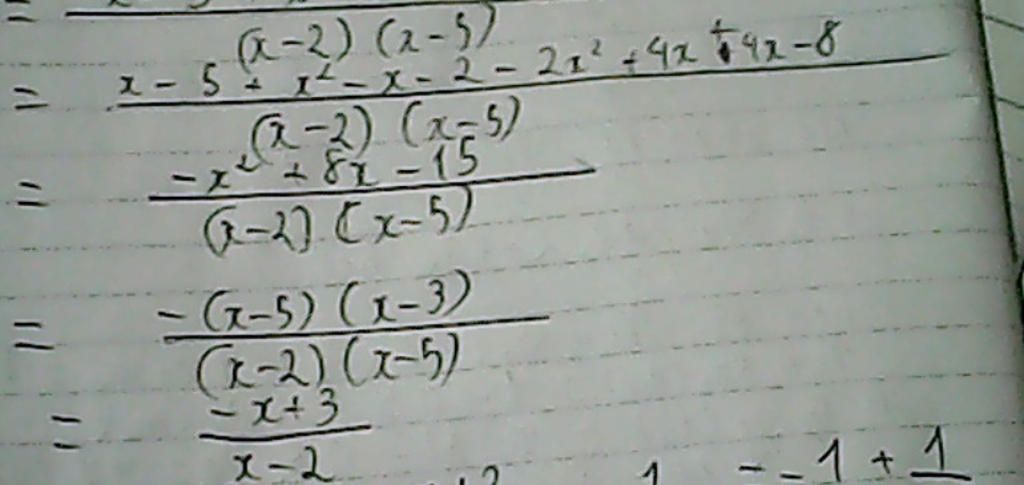 =
(x-2) (x-5)
= x - 5 + x² - x - 2 - 2x² + 4x + 4x - 8
(x-2) (x-5)
= -x² + 8x - 15
(x-2) (x-5)
= -(x-5) (x-3)
(x-2) (x-5)
= -x+3
x-2
1 = -1 + 1